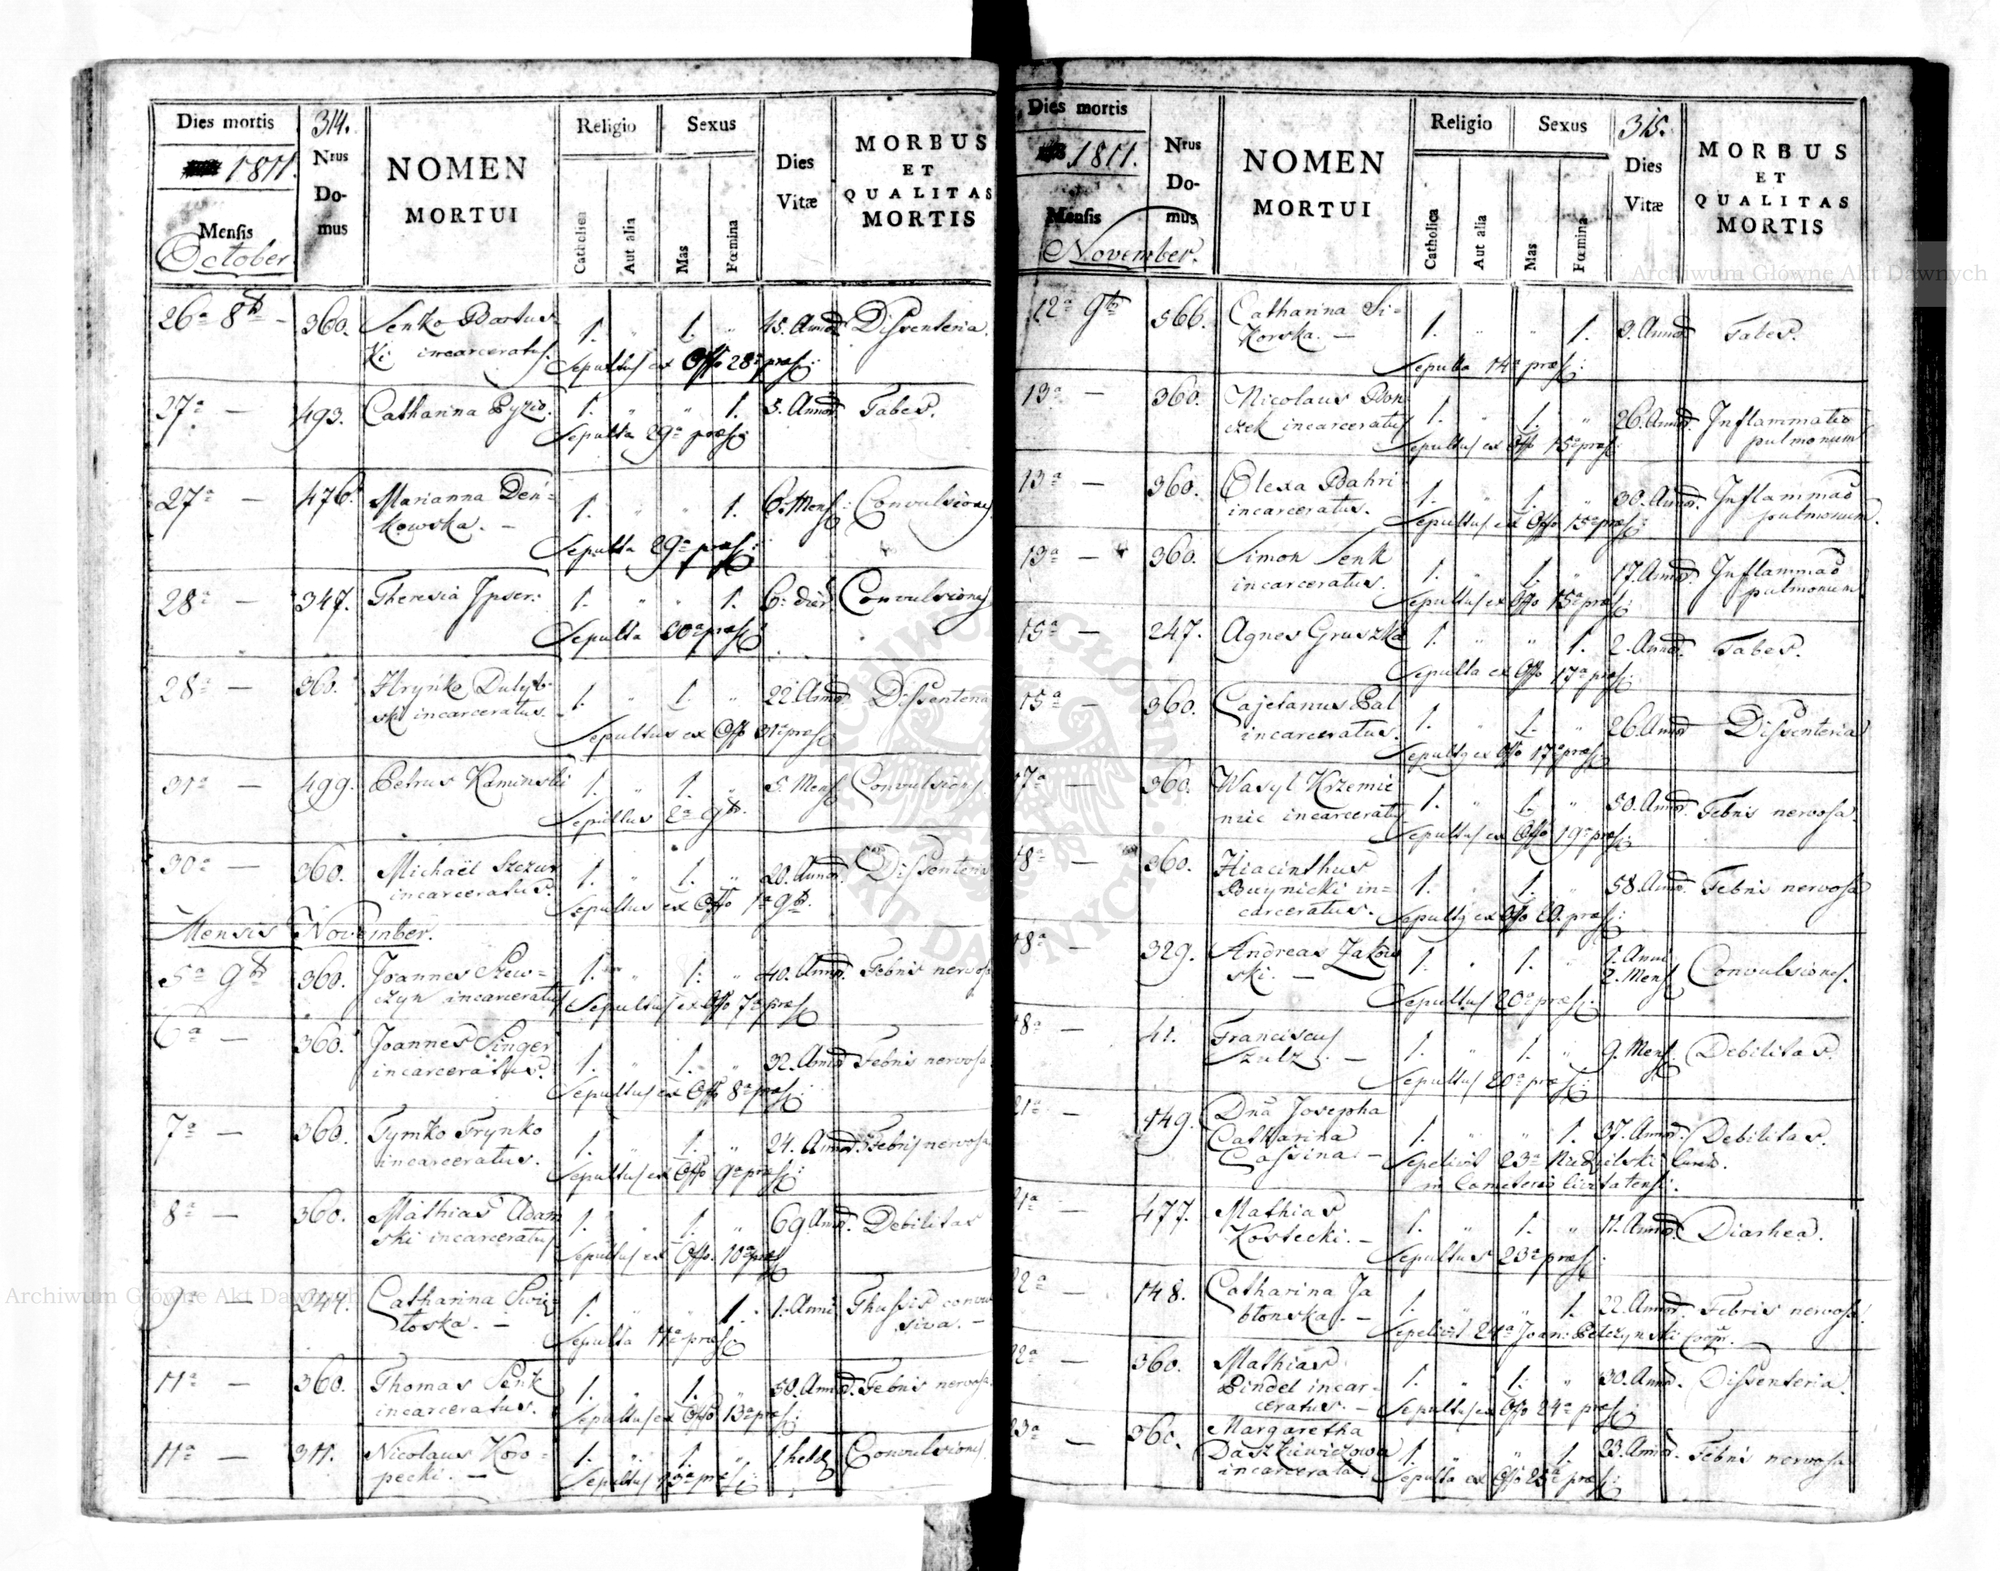 Dies mortis
1811.
Mensis
October
314.
Nrus
Do-
mus
NOMEN
MORTUI
Religio
Catholica
Aut alia
Sexus
Mas
Fœmina
Dies
Vitæ
MORBUS
ET
QUALITAS
MORTIS
26a 8br - 360. Senko Bartus- 1. " 1. " 45. Annor Dissenteria.
Ki incarceratus. Sepultus ex Offo 28a præs:
27a — 493. Catharina Pyzio. 1. " " 1. 5. Annor Tabes.
Sepulta 29a præs:
27a — 476. Marianna Deń- 1. " " 1. 6. Mens: Convulsiones
kowska. —
Sepulta 29a præs:
28a — 347. Theresia Ipser: 1. " " 1. 6. dier Convulsiones
Sepulta 30a præs:
28a — 360. Hryńko
ski incarceratus. 1. " 1. " 22. Annor Dissenteria
Sepultus ex Offo 31a præs:
31a — 499. Petrus Kaminski 1. " 1. " 5. Mens Convulsiones
Sepultus 2a 9br.
30a — 360. Michaël Szczur 1. " 1. " 20. Annor. Dissenteria
incarceratus. Sepultus ex Offo 1a 9br.
Mensis November.
5a 9br 360. Joannes Szew- 1. " 1. " 40. Annor. Febris nervosa
czyn incarceratus Sepultus ex Offo 7a præs
6a — 360. Joannes Singer
incarceratus. 1. " 1. " 32. Annor Febris nervosa
Sepultus ex Offo 8a præs:
7a — 360. Tymko Frynko
incarceratus. 1. " 1. " 24. Annor. Febris nervosa
Sepultus ex Offo 9a præs:
8a — 360. Mathias Adam
ski incarceratus 1. " 1. " 69. Annor. Debilitas
Sepultus ex Offo. 10a præs
9a — 244. Catharina Swię- 1. " " 1. 1. Anni Thussis convul
toska. — siva. —
Sepulta 11a præs:
11a — 360. Thomas Senk 1. " 1. " 50. Annor. Febris nervosa
incarceratus. Sepultus ex Offo 13a præs:
11a — 311. Nicolaus Koro- 1. " 1. " 1 hebd Convulsiones
pecki. — Sepultus 13a præs:
Dies mortis
1811.
Mensis
November.
Nrus
Do-
mus
NOMEN
MORTUI
Religio
Catholica
Aut alia
Sexus
Mas
Fœmina
315.
Dies
Vitæ
MORBUS
ET
QUALITAS
MORTIS
12a 9br 566. Catharina Si-
korska. — 1. " " 1. 3. Annor Tabes.
Sepulta 14a præs:
13a — 360. Nicolaus Bon
czek incarceratus 1. " 1. " 26. Annor. Inflammatio
pulmonum
Sepultus ex Offo 15a præs:
13a — 360. Olexa Bahri
incarceratus. 1. " 1. " 30. Annor. Inflammao
pulmonum.
Sepultus ex Offo 15a præs:
13a — 360. Simon Senk
incarceratus. 1. " 1. " 17. Annor. Inflammao
pulmonum
Sepultus ex Offo 15a præs:
15a — 247. Agnes Gruszka 1. " " 1. 2. Annor. Tabes.
Sepulta ex Offo 17a præs:
15a — 360. Cajetanus Bal
incarceratus. 1. " 1. " 26. Annor Dissenteria
Sepultg ex Offo 17a præs
17a — 360. Wasyl Krzemie
nuic incarceratus 1. " 1. " 50. Annor. Febris nervosa.
Sepultus ex Offo 19a præs:
18a — 360. Hiacinthus
Buynicki in=
carceratus. — 1. " 1. " 58. Annor. Febris nervosa
Sepultg ex Offo 20. præs:
18a — 329. Andreas Zakow
ski. — 1. " 1. " 1. Anni
2. Mens Convulsiones.
Sepultus 20a præs:
18a — 41. Franciscus
Szulz. — 1. " 1. " 9. Mens. Debilitas.
Sepultus 20a præs:
21a — 149. Dna Josepha
Catharina
Cassina. — 1. " " 1. 37. Annor. Debilitas.
Sepelivit 23a
in Cometerio
21a — 477. Mathias
Kostecki. — 1. " 1. " 11. Annor. Diarhea.
Sepultus 23a præs:
22a — 148. Catharina Ja
błonska. — 1. " " 1. 22. Annor. Febris nervosa.
Sepelivit 24a Joan: Pełczynski Coopr. —
22a — 360. Mathias
Pindel incar-
ceratus. — 1. " 1. " 30. Annor. Dissenteria.
Sepultus ex Offo 24a præs:
23a — 360. Margaretha
Daszkiewiczowa
incarcerata. 1. " " 1. 23. Annor. Febris nervosa
Sepulta ex Offo 25a præs:
Archiwum Główne Akt Dawnych
Archiwum Główne Akt Dawnych
ARCHIWUM GŁÓWNE AKT DAWNYCH